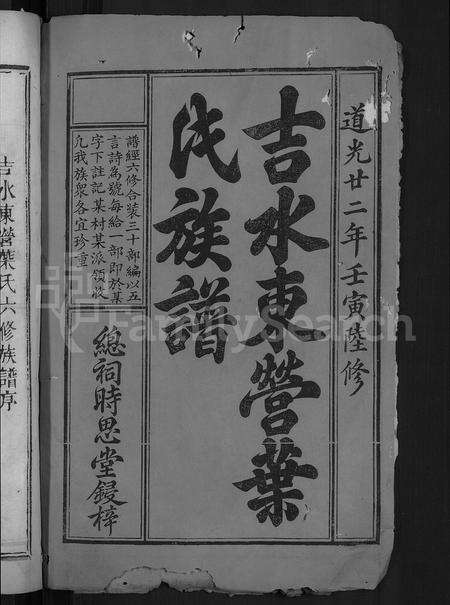 道光廿二年壬寅陸修
吉水東營葉
氏族譜
譜經六修合裝三十部編以五
言詩為號每給一部即於某
字下註記某村某派領液
凢我族衆各宜珍重
總祠時思堂鋟梓
吉水東營葉氏六修族譜序
FamilySearch